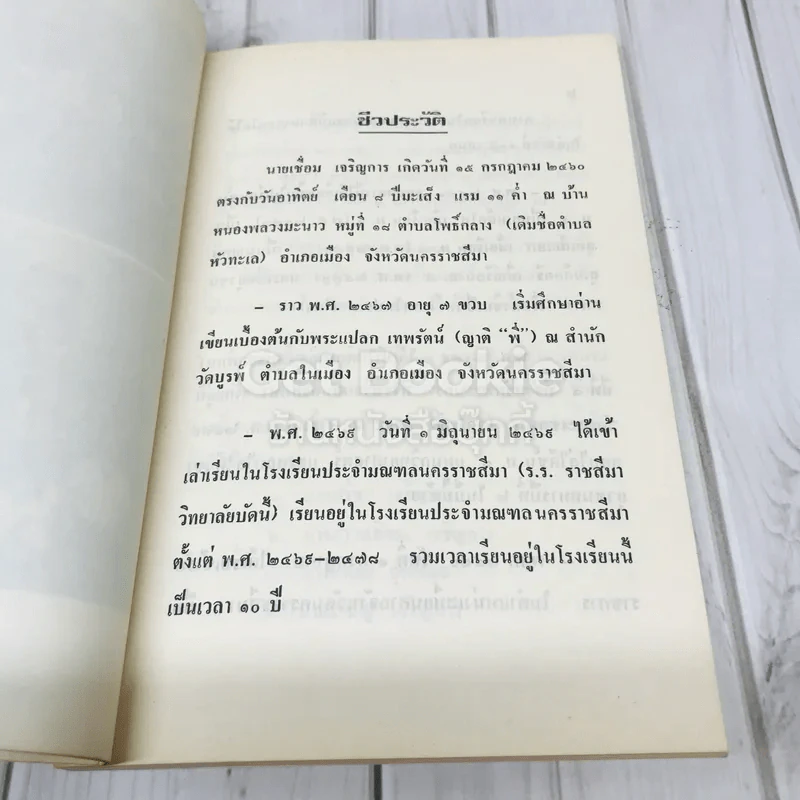 ชีวประวัติ
นายเชื่อม เจริญการ เกิดวันที่ ๑๕ กรกฎาคม ๒๔๖๐
ตรงกับวันอาทิตย์ เดือน ๘ ปีมะเส็ง แรม ๑๑ ค่ำ ณ บ้าน
หนองพลวงมะนาว หมู่ที่ ๑๘ ตำบลโพธิ์กลาง (เดิมชื่อตำบล
หัวทะเล) อำเภอเมือง จังหวัดนครราชสีมา
– ราว พ.ศ. ๒๔๖๗ อายุ ๗ ขวบ เริ่มศึกษาอ่าน
เขียนเบื้องต้นกับพระแปลก เทพรัตน์ (ญาติ “พี่”) ณ สำนัก
วัดบูรพ์ ตำบลในเมือง อำเภอเมือง จังหวัดนครราชสีมา
Get Bookie
ร้านหนังสือบุ๊คกี้
– พ.ศ. ๒๔๖๙ วันที่ ๑ มิถุนายน ๒๔๖๙ ได้เข้า
เล่าเรียนในโรงเรียนประจำมณฑลนครราชสีมา (ร.ร. ราชสีมา
วิทยาลัยบัดนี้) เรียนอยู่ในโรงเรียนประจำมณฑลนครราชสีมา
ตั้งแต่ พ.ศ. ๒๔๖๙–๒๔๗๘ รวมเวลาเรียนอยู่ในโรงเรียนนี้
เป็นเวลา ๑๐ ปี